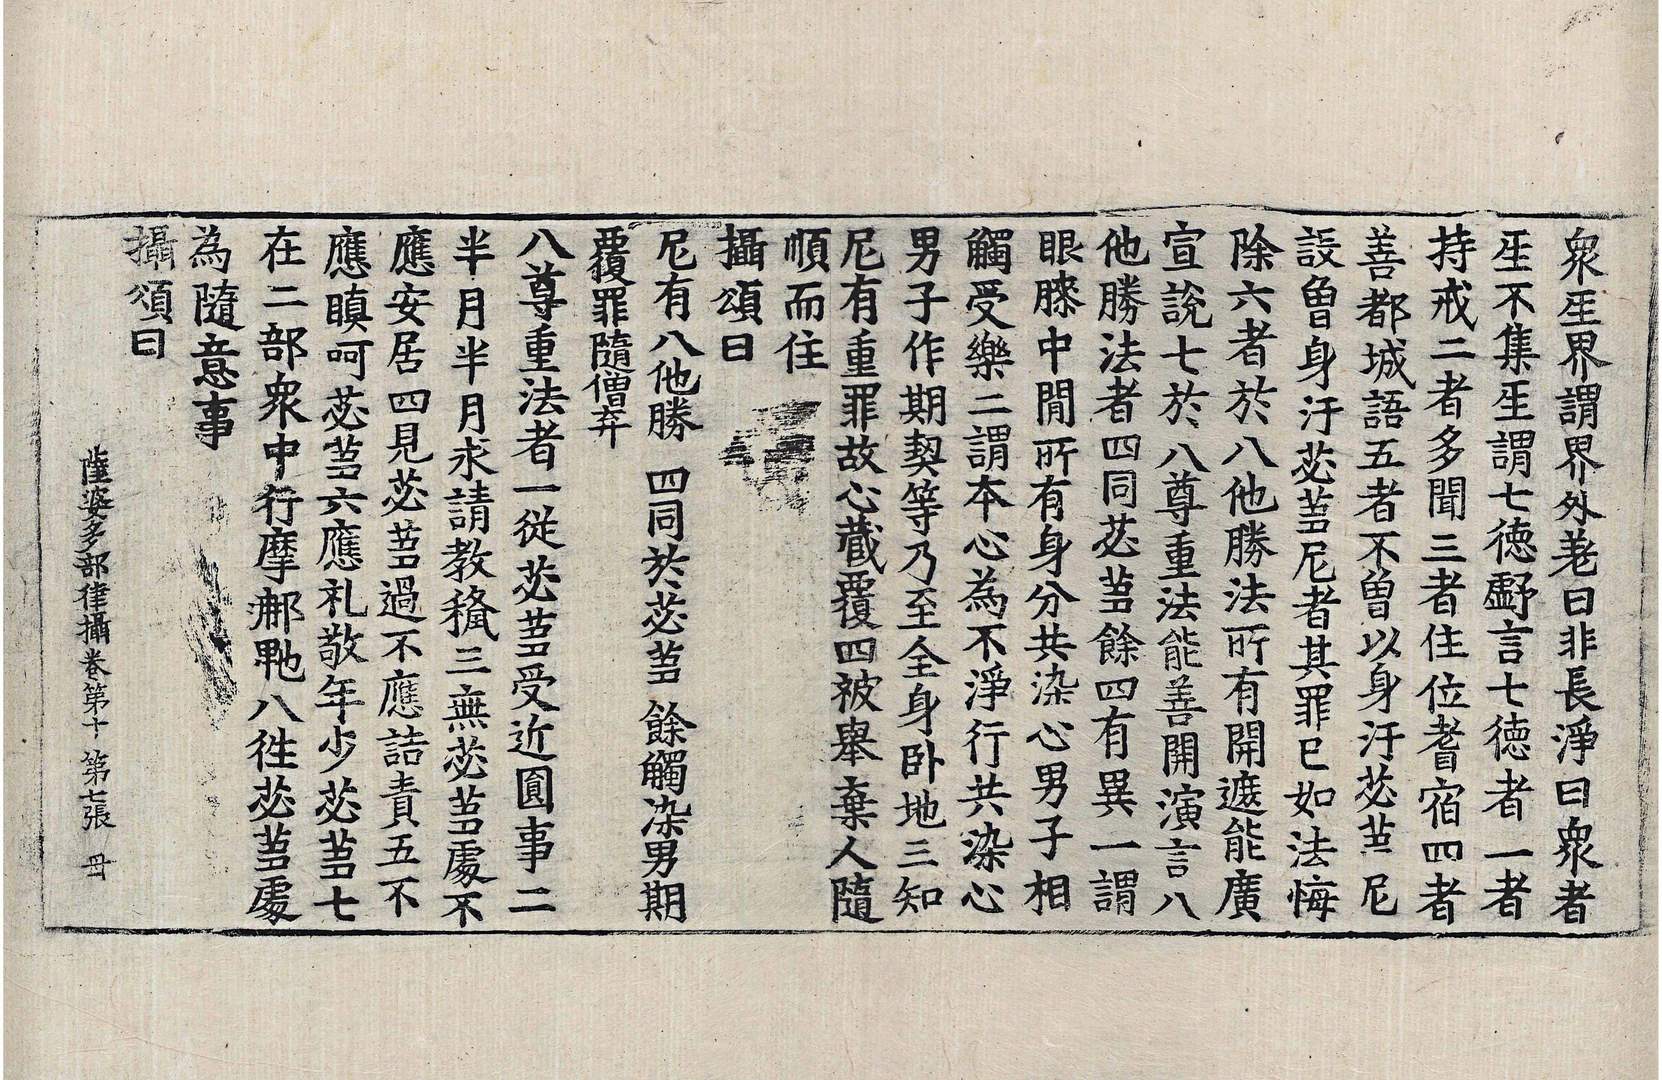 衆坐界謂界外差日非長淨日衆者
坐不集坐謂七德尠言七德者一者
持戒二者多聞三者住位耆宿四者
善都城語五者不曾以身汙苾芻尼
設曾身汙苾芻尼者其罪已如法悔
除六者於八他勝法所有開遮能廣
宣說七於八尊重法能善開演言八
他勝法者四同苾芻餘四有異一謂
眼膝中間所有身分共染心男子相
觸受樂二謂本心為不淨行共染心
男子作期契等乃至全身卧地三知
尼有重罪故心藏覆四被舉棄人隨
順而住
攝頌曰
尼有八他勝 四同於苾芻 餘觸染男期
覆罪隨僧弃
八尊重法者一從苾芻受近圓事二
半月半月求請教授三無苾芻處不
應安居四見苾芻過不應詰責五不
應瞋呵苾芻六應礼敬年少苾芻七
在二部衆中行摩㮈䫂八往苾芻處
為隨意事
攝頌曰
薩婆多部律攝卷第十 第七張 丗